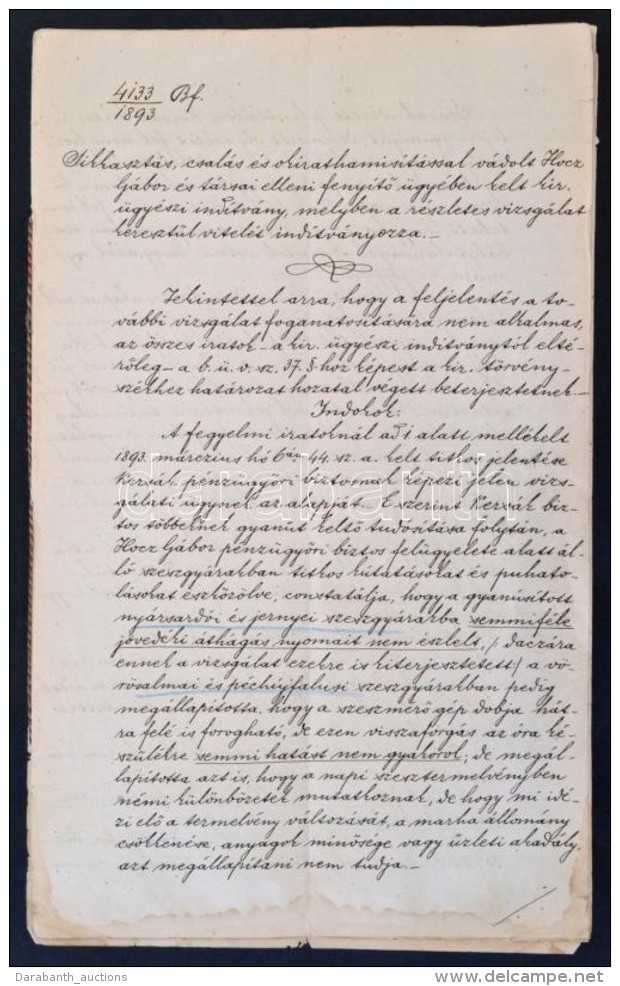 4133 Bf.
1893
Sikkasztás, csalás és okirathamisitással vádolt Hocz
Gábor és társai elleni fenyitő ügyében kelt kir.
ügyészi inditvány, melyben a részletes vizsgálat
keresztül vitelét indítványozza. –
Tekintettel arra, hogy a feljelentés a to-
vábbi vizsgálat foganatositására nem alkalmas,
az összes iratok – a kir. ügyészi inditványtól elté-
rőleg – a b. ü. v. sz. 37. §-hoz képest a kir. törvény-
székhez határozat hozatal végett beterjesztetnek. –
Indokok:
A fegyelmi iratoknál a 1 alatt mellékelt
1893. márczius hó 6án 44. sz. a. kelt titkos jelentése
Kerzák pénzügyőri biztosnak képezi jelen vizs-
gálati ügynek az alapját. E szerint Kerzák biz-
tos többeknek gyanút keltő tudósitása folytán, a
Hocz Gábor pénzügyőri biztos felügyelete alatt ál-
ló szeszgyárakban titkos kutatásokat és puhato-
lásokat eszközölve, constatálja, hogy a gyanúsitott
nyársardói és jernyei szeszgyárakba semmiféle
jövedéki áthágás nyomait nem észlelt, /: daczára
ennek a vizsgálat ezekre is kiterjesztetett/ a vö-
rösalmai és péchújfalusi szeszgyárakban pedig
megállapitotta, hogy a szeszmérő gép dobja hát-
ra felé is forogható, de ezen visszaforgás az óra ké-
szülékre semmi hatást nem gyakorol; de megál-
lapitotta azt is, hogy a napi szesztermelvényben
némi különbözetek mutatkoznak, de hogy mi idé-
zi elő a termelvény változását, a marha állomány
csökkenése, anyagok minősége vagy üzleti akadály,
azt megállapitani nem tudja. –
darabanth
Darabanth_auctions